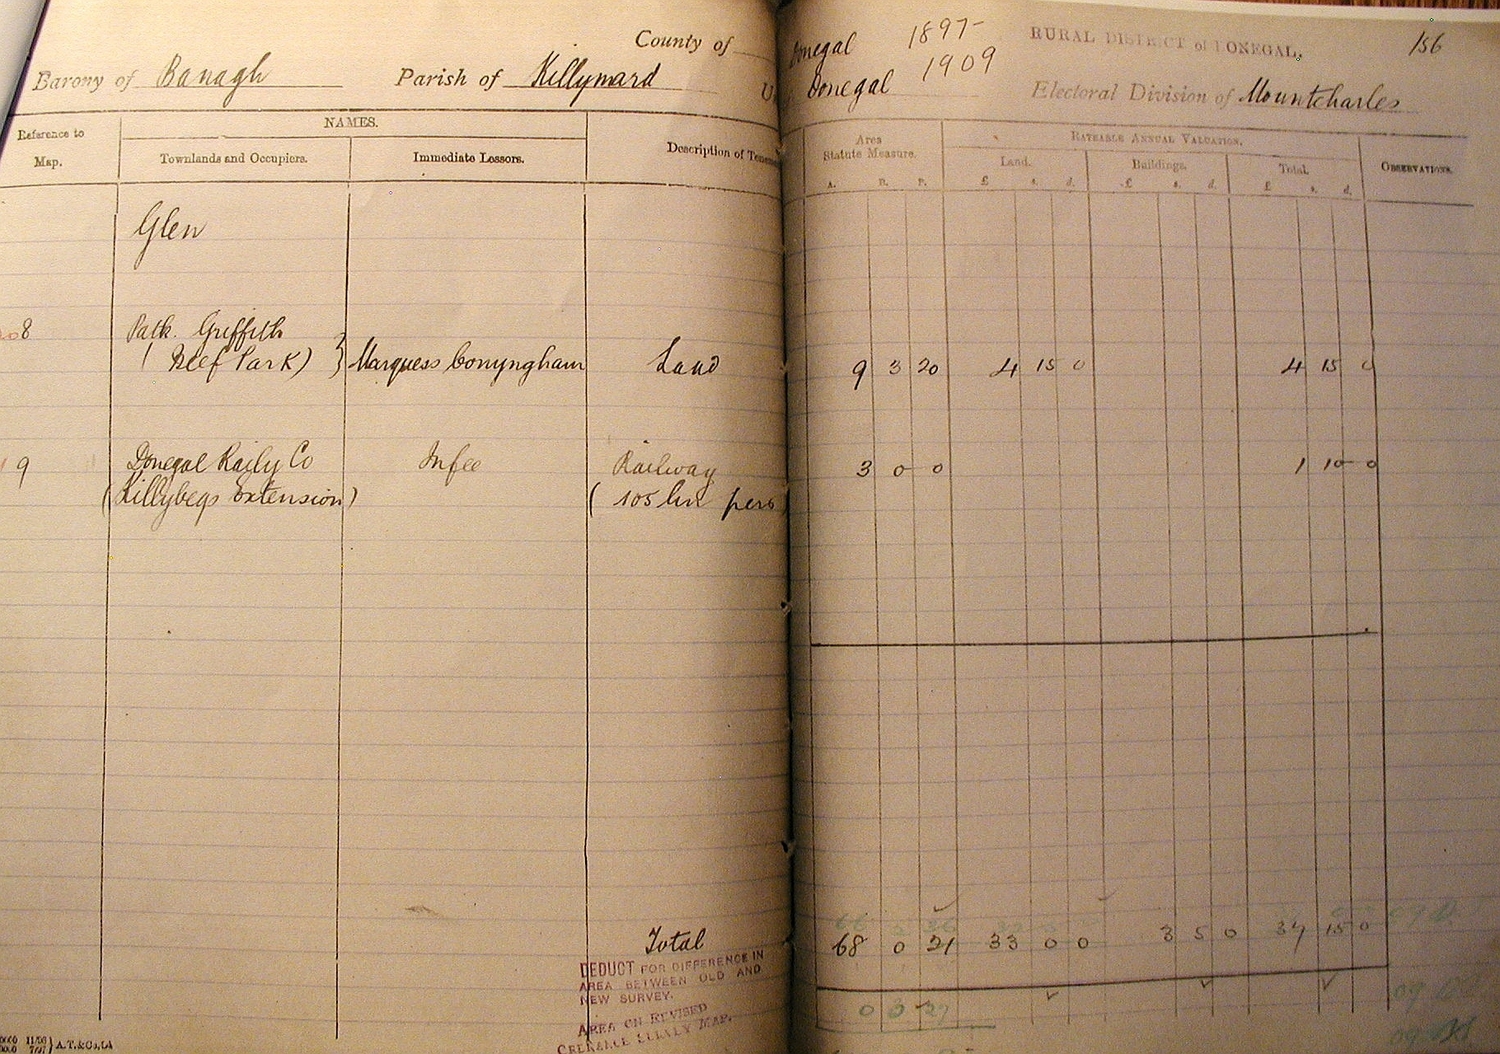 County of Donegal 1897-
1909
RURAL DISTRICT of DONEGAL.
156
Barony of Banagh Parish of Killymard
Donegal
Electoral Division of Mountcharles
Reference to
Map.
NAMES.
Townlands and Occupiers.
Immediate Lessors.
Description of Tenem
Area
Statute Measure.
A. R. P.
RATEABLE ANNUAL VALUATION.
Land. Buildings. Total.
£ s. d. £ s. d. £ s. d.
OBSERVATIONS.
Glen
8 Patk. Griffith
(Beef Park) } Marquess Conyngham Land 9 3 20 4 15 0 4 15 0
9 Donegal Raily Co In fee Railway 3 0 0 1 10 0
(Killybegs Extension) (105 lin pers
Total 68 0 21 33 0 0 3 5 0 37 15 0
DEDUCT FOR DIFFERENCE IN
AREA BETWEEN OLD AND
NEW SURVEY.
0 3 27
AREA ON REVISED
ORDNANCE SURVEY MAP.
11/96
7/97 } A.T.&Co.,Ld